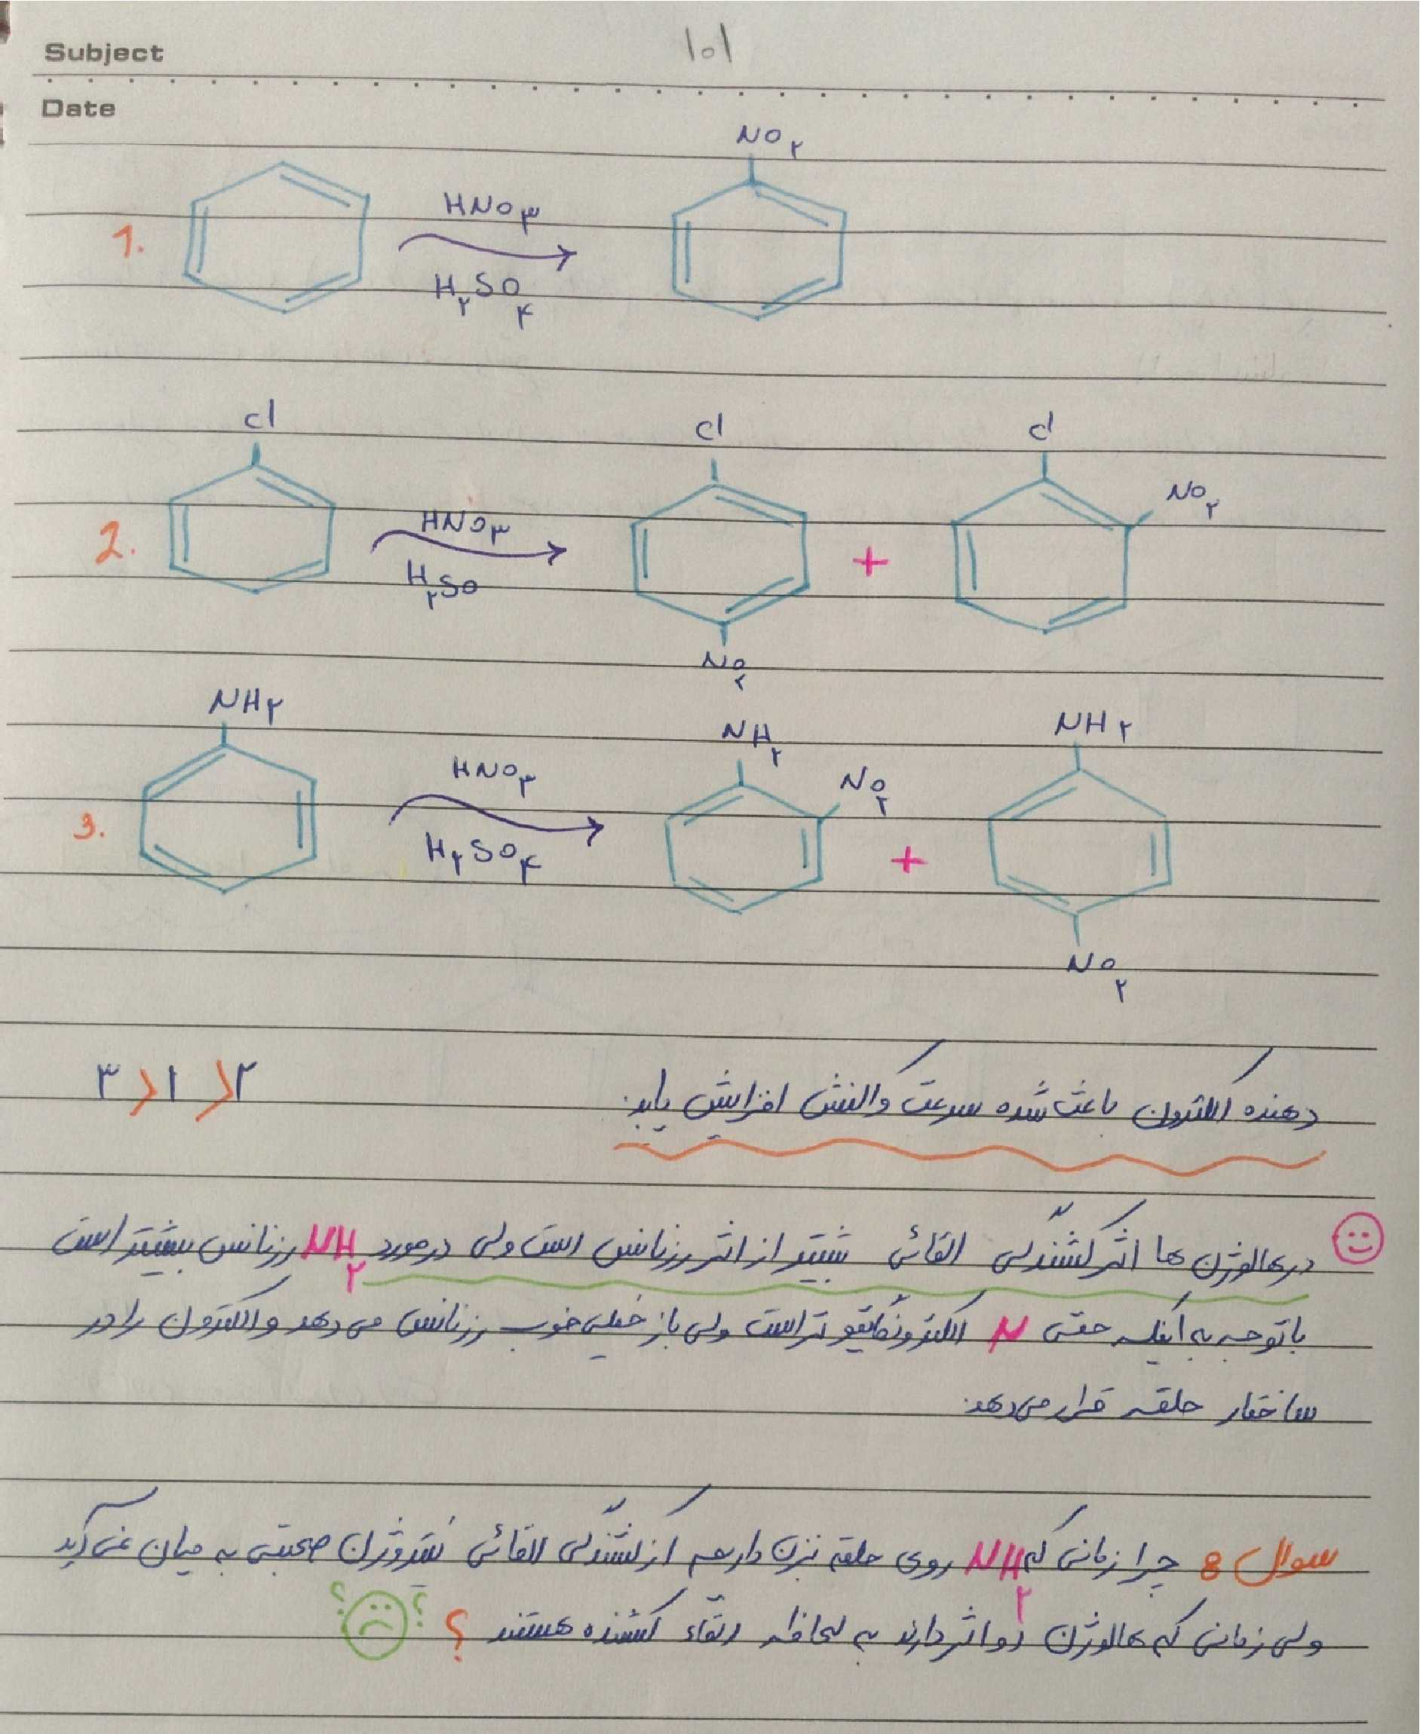 Subject
۱۰۱
Date
NO۲
1. HNO۳
H۲SO۴
Cl Cl Cl
NO۲
2. HNO۳ +
H۲SO
NO۲
NH۲ NH۲ NH۲
HNO۳ NO۲
3. +
H۲SO۴
NO۲
دهنده الکترون باعث شده سرعت واکنش افزایش یابد. ۳>۱>۲
درهالوژن ها اثر کشندگی القائی بیشتر از اثر رزنانس است ولی درمورد NH۲ رزنانس بیشتر است
باتوجه به اینکه حتی N الکترونگاتیو تراست ولی باز خیلی خوب رزنانس می دهد و الکترون را در
ساختار حلقه قرار می دهد.
سوال 8 چرا زمانی که NH۲ روی حلقه بنزن داریم از کشندگی القائی نیتروژن صحبتی به میان نمی آید
ولی زمانی که هالوژن دو اثر دارند به لحاظ القاء کشنده هستند ؟ ؟ ؟